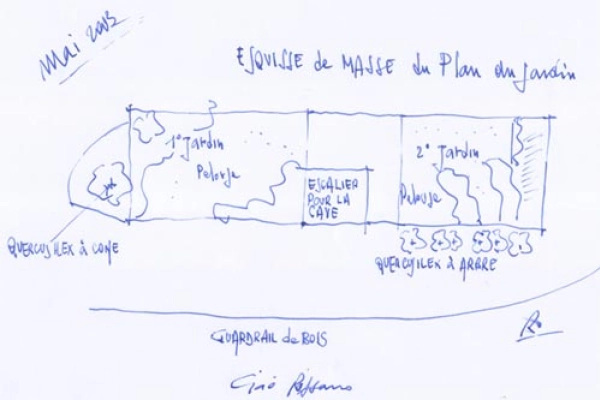 Mai 2003
ESQUISSE de MASSE du Plan du jardin
1° Jardin
Pelouse
ESCALIER
POUR LA
CAVE
2° Jardin
Pelouse
QUERCUS ILEX à CONE
QUERCUS ILEX à ARBRE
GUARDRAIL de BOIS
Ciao